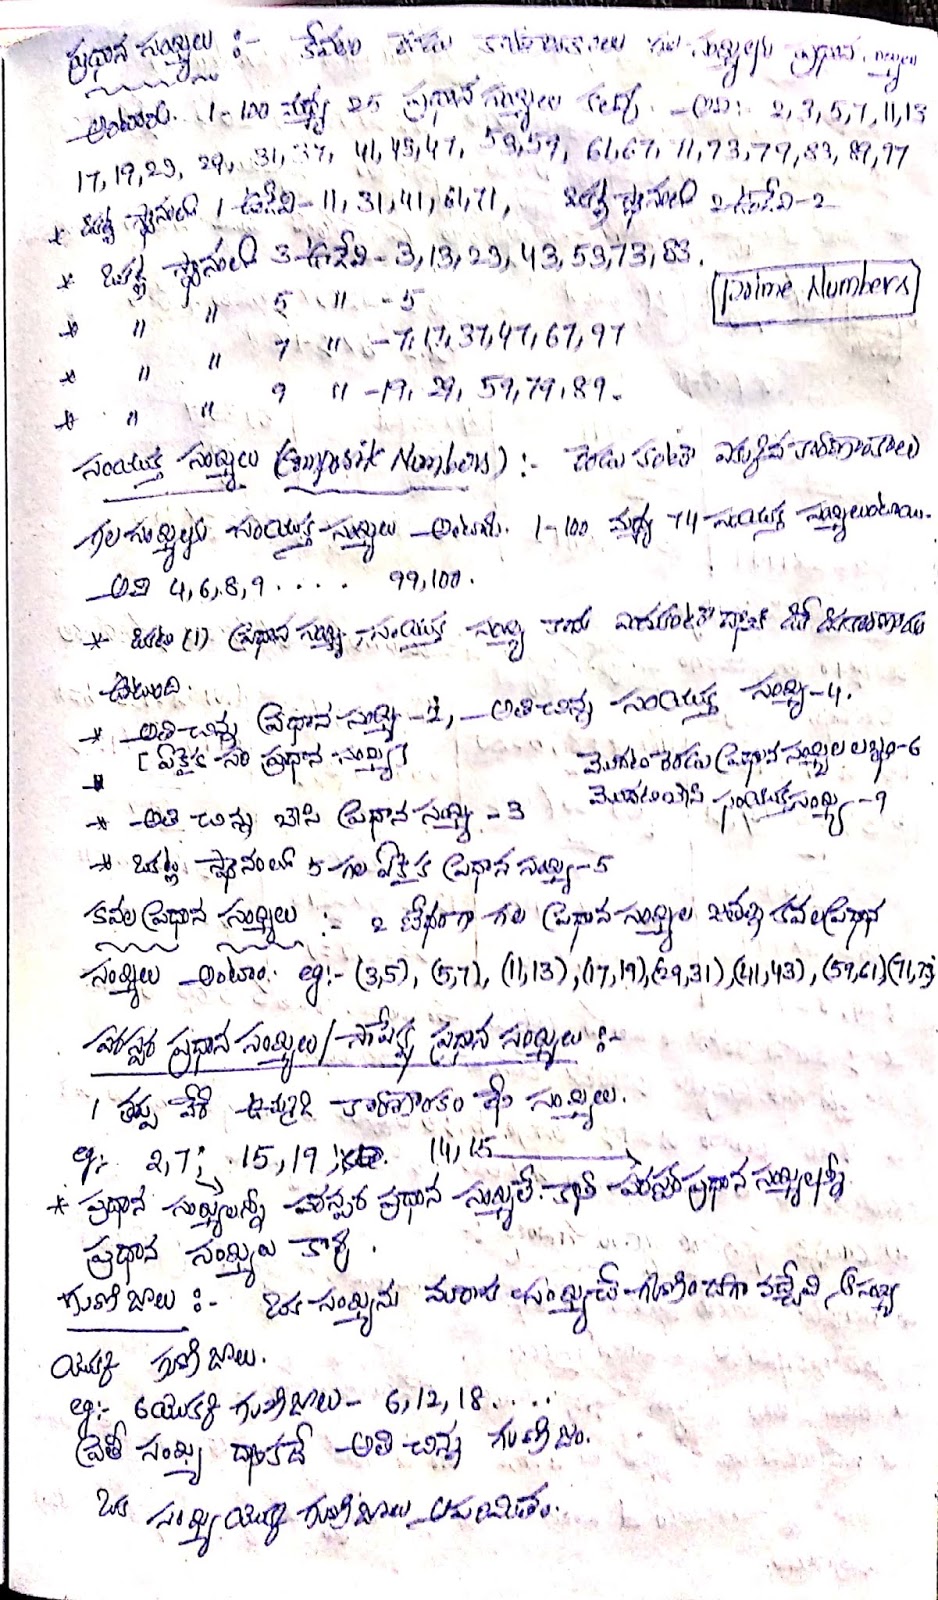 ప్రధాన సంఖ్యలు :- కేవలం రెండు కారణాంకాలు గల సంఖ్యలను ప్రధాన సంఖ్యలు
అంటారు. 1-100 మధ్య 25 ప్రధాన సంఖ్యలు కలవు. అవి: 2,3,5,7,11,13
17,19,23, 29, 31,37, 41,43,47, 53,59, 61,67, 71,73,79,83,89,97
* ఒకట్ల స్థానంలో 1 ఉన్నవి - 11,31,41,61,71, ఒకట్ల స్థానంలో 2 ఉన్నవి - 2
* ఒకట్ల స్థానంలో 3 ఉన్నవి - 3,13,23,43,53,73,83.
* " " 5 " - 5
[Prime Numbers]
* " " 7 " - 7,17,37,47,67,97
* " " 9 " - 19, 29, 59,79,89.
సంయుక్త సంఖ్యలు (Composite Numbers) :- రెండు కంటే ఎక్కువ కారణాంకాలు
గల సంఖ్యలను సంయుక్త సంఖ్యలు అంటారు. 1-100 మధ్య 74 సంయుక్త సంఖ్యలుంటాయి.
అవి 4,6,8,9 . . . . 99,100.
* ఒకటి (1) ప్రధాన సంఖ్య, సంయుక్త సంఖ్య కాదు ఎందుకంటే దానికి ఒకే కారణాంకం
ఉంటుంది.
* అతి చిన్న ప్రధాన సంఖ్య - 2, అతి చిన్న సంయుక్త సంఖ్య - 4.
[ ఏకైక సరి ప్రధాన సంఖ్య ] మొదటి రెండు ప్రధాన సంఖ్యల లబ్ధం - 6
* అతి చిన్న బేసి ప్రధాన సంఖ్య - 3 మొదటి బేసి సంయుక్త సంఖ్య - 9
* ఒకట్ల స్థానంలో 5 గల ఏకైక ప్రధాన సంఖ్య - 5
కవల ప్రధాన సంఖ్యలు :- 2 భేదంగా గల ప్రధాన సంఖ్యల జతల్ని కవల ప్రధాన
సంఖ్యలు అంటాం. ఉ:- (3,5), (5,7), (11,13), (17,19), (29,31), (41,43), (59,61) (71,73)
పరస్పర ప్రధాన సంఖ్యలు / సాపేక్ష ప్రధాన సంఖ్యలు :-
1 తప్ప వేరే ఉమ్మడి కారణాంకం లేని సంఖ్యలు.
ఉ:- 2,7; 15,19; 14,15
* ప్రధాన సంఖ్యలన్నీ పరస్పర ప్రధాన సంఖ్యలే. కానీ పరస్పర ప్రధాన సంఖ్యలన్నీ
ప్రధాన సంఖ్యలు కావు.
గుణిజాలు :- ఒక సంఖ్యను మరొక సంఖ్యచే గుణించగా వచ్చేవి ఆ సంఖ్య
యొక్క గుణిజాలు.
ఉ:- 6 యొక్క గుణిజాలు - 6,12,18 . . . .
ప్రతీ సంఖ్య దానికదే అతి చిన్న గుణిజం.
ఒక సంఖ్య యొక్క గుణిజాలు అనంతం.